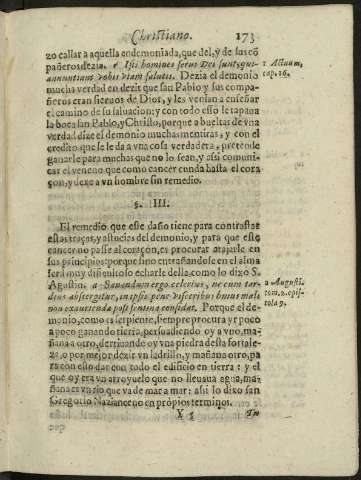 Christiano. 173
zo callar a aquella endemoniada, que del, y de sus cō
pañeros dezia. e Isti homines serui Dei sunt, qui
annuntiant vobis viam salutis. Dezia el demonio
mucha verdad en dezir que san Pablo, y sus compa-
ñeros eran sieruos de Dios, y les venian a enseñar
el camino de su saluacion; y con todo esso le tapan
la boca san Pablo, y Christo, porque a bueltas de vna
verdad dize el demonio muchas mentiras, y con el
credito que se le da a vna cosa verdadera, pretende
ganarle para muchas que no lo sean, y assi comuni-
car el veneno que como cancer cunda hasta el cora
çon, y dexe a vn hombre sin remedio.
e Actuum,
cap. 16.
§. IIII.
El remedio que este daño tiene para contrastar
estas traças, y astucias del demonio, y para que este
cancer no passe al coraçon, es procurar atajarle en
sus principios: porque sino entrañandose en el alma
serà muy dificultoso echarle della, como lo dixo S.
Agustin. a Sanandum ergo celerius, ne cum tar-
deus abstergitur, in ipsis pene visceribus huius mali
non exaurienda post sentina considat. Porque el de-
monio, como es serpiente, siempre procura yr poco
a poco ganando tierra, persuadiendo oy a vno, ma-
ñana a otro, derribando oy vna piedra desta fortale-
za, o por mejor dezir vn ladrillo, y mañana otro, pa
ra con esto dar con todo el edificio en tierra: y el
que oy era vn arroyuelo que no lleuaua agua, ma-
ñana es vn rio que va de mar a mar: assi lo dixo san
Gregorio Nazianceno en propios terminos.
a Augusti.
tom. 2. epis-
tola 9.
Y